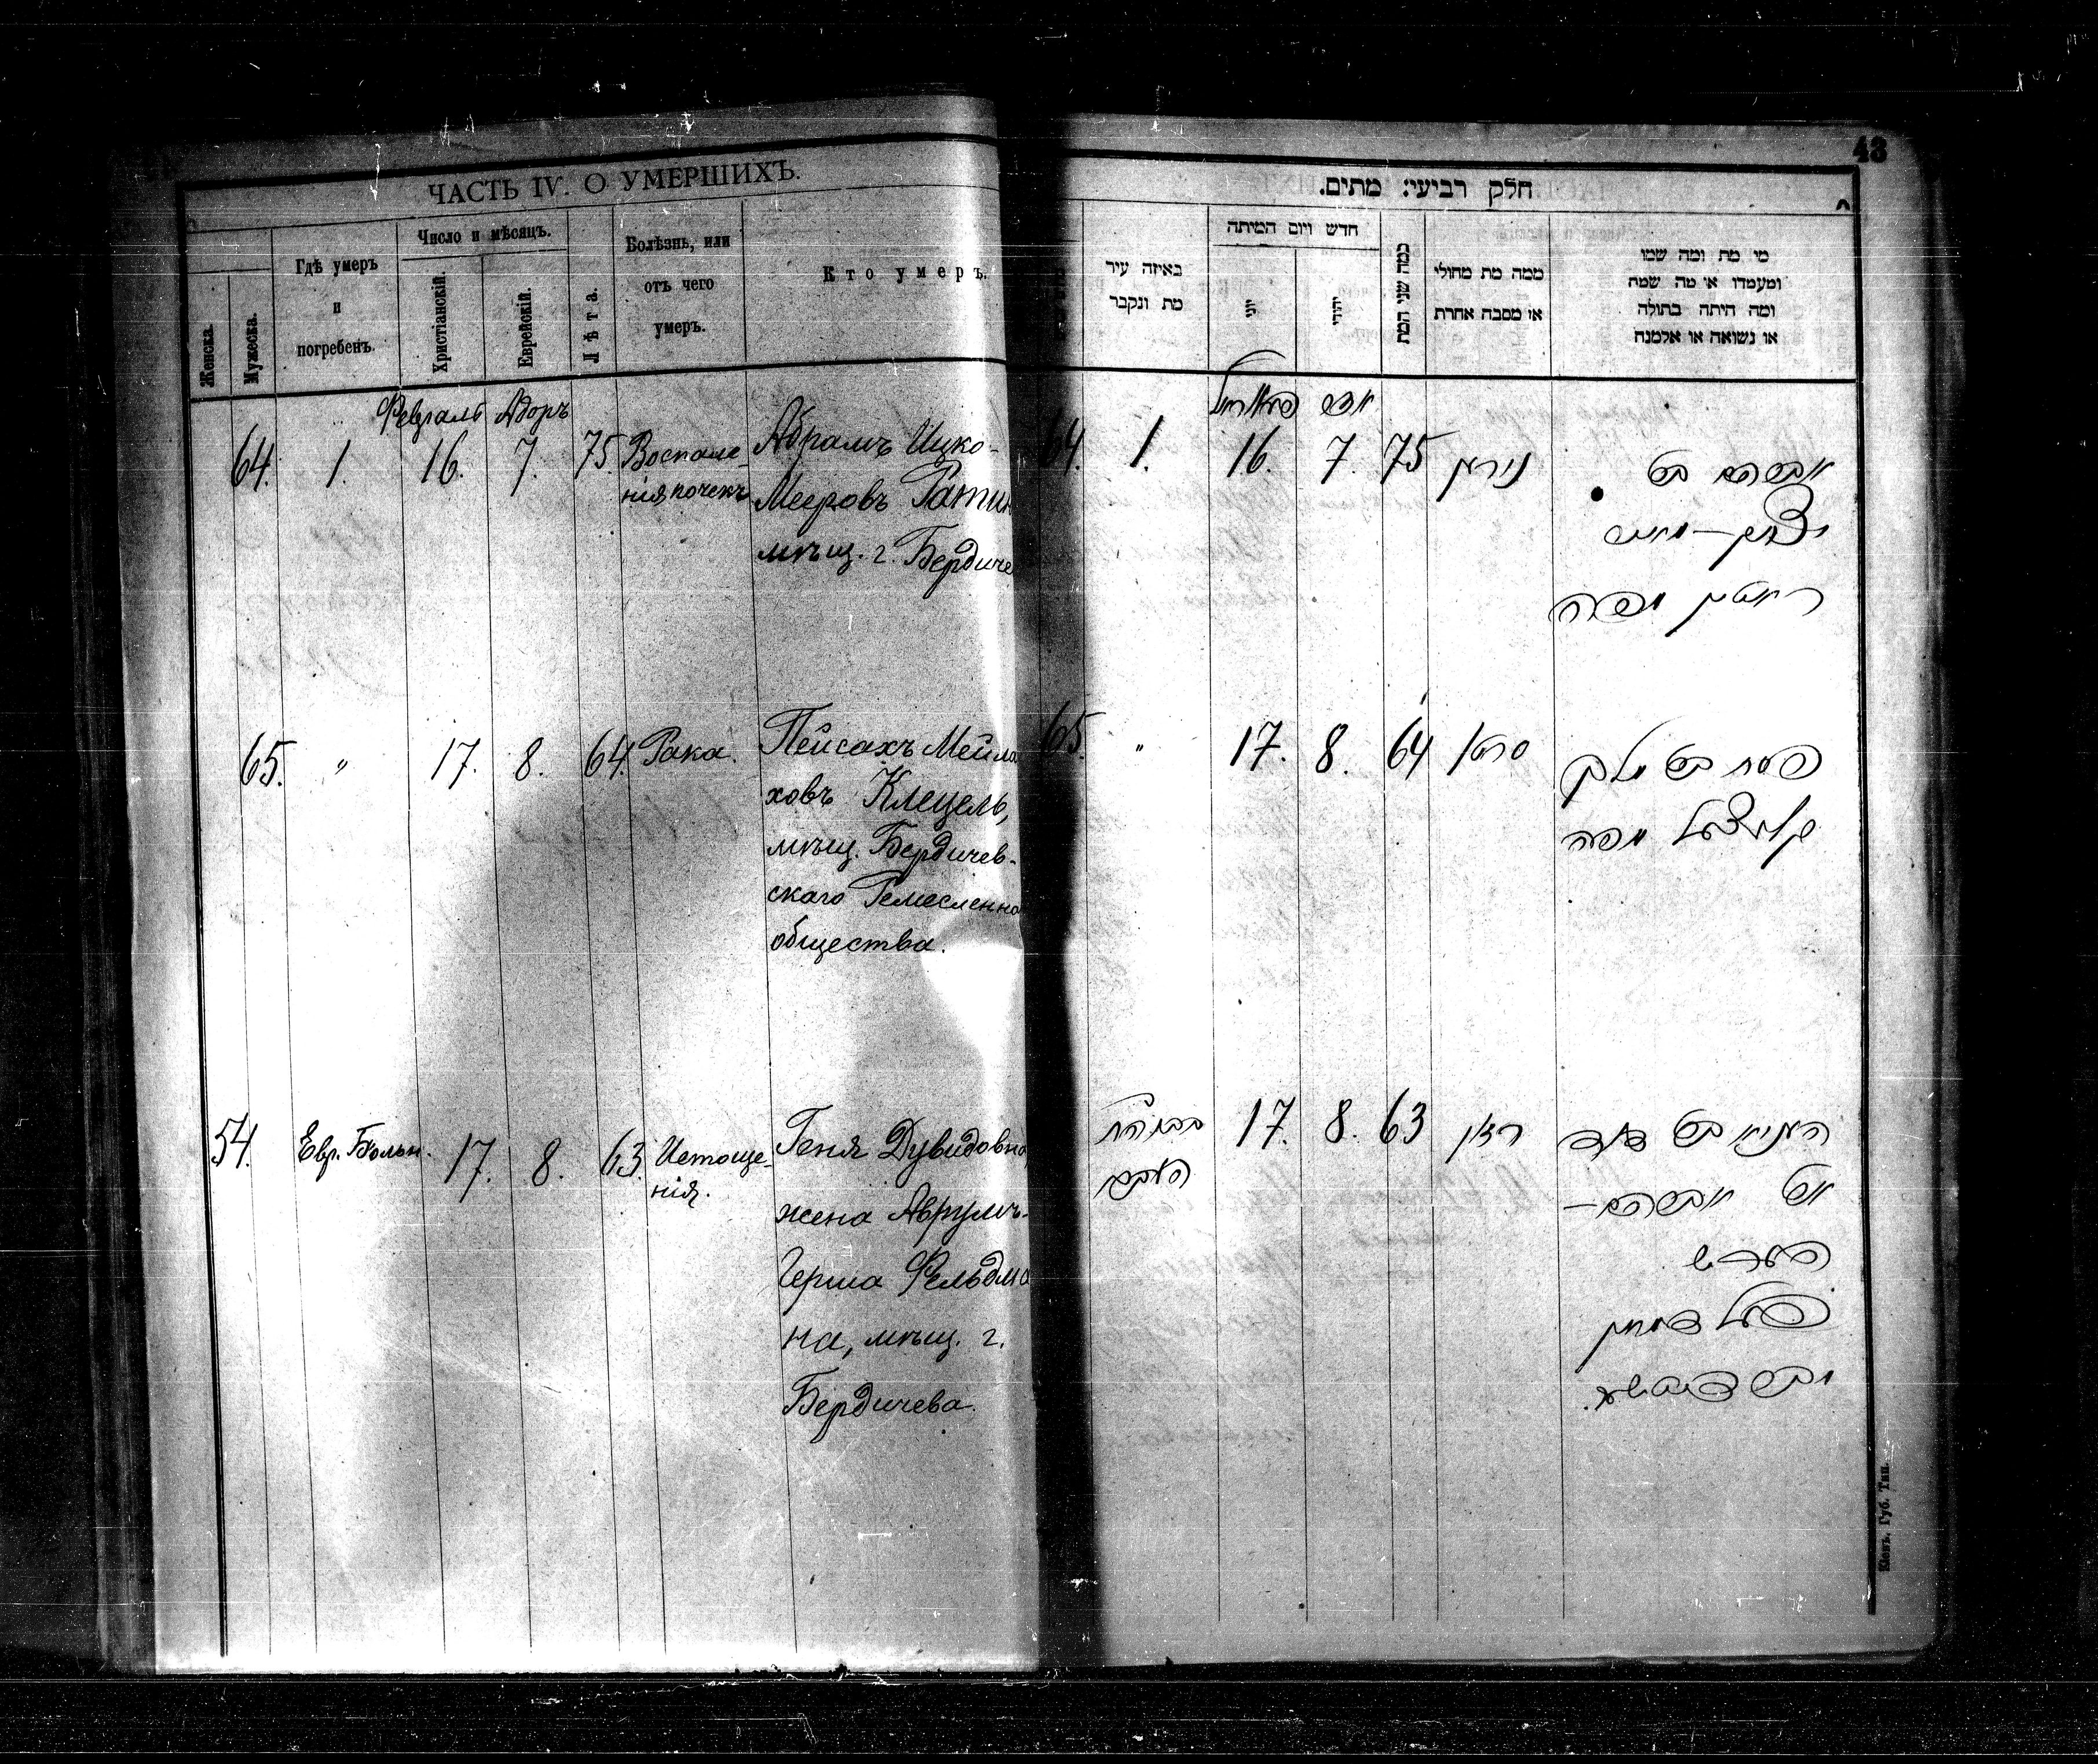 43
ЧАСТЬ IV. О УМЕРШИХЪ.
Женска.
Мужеска.
Гдѣ умеръ
и
погребенъ.
Число и мѣсяцъ.
Христіанскій.
Еврейскій.
Лѣта.
Болѣзнь, или
отъ чего
умеръ.
Кто умеръ.
Февраль Адоръ
64. 1. 16. 7. 75. Воспале-
нія почекъ
Абрамъ Ицко-
Мееровъ
мѣщ. г. Бердиче
65. " 17. 8. 64. Рака.
Пейсахъ Мейла
ховъ Клецель,
мѣщ. Бердичев-
скаго Ремесленно
общества.
54. Евр. Больн. 17. 8. 63. Истоще-
нія.
Геня Дувидовна,
жена Аврумъ-
Герша Фельдма
на, мѣщ. г.
Бердичева.
חלק רביעי: מתים.
באיזה עיר
מת ונקבר
חדש ויום המיתה
יוני
יהודי
כמה שני המת
ממה מת מחולי
או מסבה אחרת
מי מת ומה שמו
ומעמדו או מה שמה
ומה היתה בתולה
או נשואה או אלמנה
אדר
64. 1. 16. 7. 75
אברהם בר
יצחק-מאיר
65. " 17. 8. 64 סרטן
פסח בר מלך
17. 8. 63 רזון
דוד
אשת אברהם-
הערש
פעלדמאן
Кіевъ. Губ. Тип.